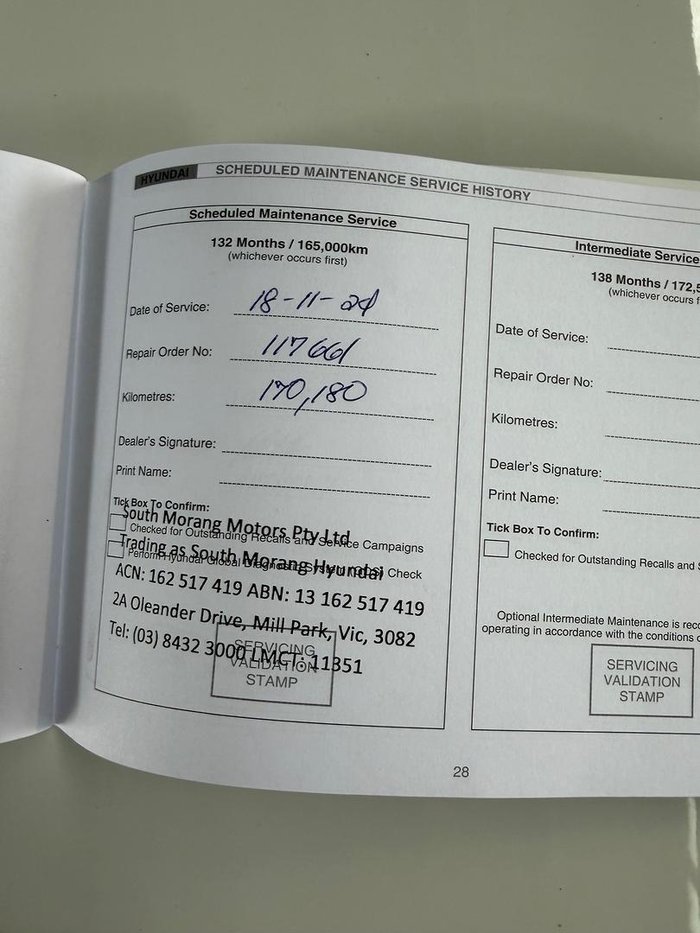 HYUNDAI SCHEDULED MAINTENANCE SERVICE HISTORY
Scheduled Maintenance Service
132 Months / 165,000km
(whichever occurs first)
Date of Service: 18-11-24
Repair Order No: 117661
Kilometres: 170,180
Dealer's Signature:
Print Name:
Tick Box To Confirm:
Checked for Outstanding Recalls and Service Campaigns
Perform Hyundai Global Diagnostic System (GDS) Check
South Morang Motors Pty Ltd
Trading as South Morang Hyundai
ACN: 162 517 419 ABN: 13 162 517 419
2A Oleander Drive, Mill Park, Vic, 3082
Tel: (03) 8432 3000 LMCT: 11351
SERVICING
VALIDATION
STAMP
Intermediate Service
138 Months / 172,5
(whichever occurs f
Date of Service:
Repair Order No:
Kilometres:
Dealer's Signature:
Print Name:
Tick Box To Confirm:
Checked for Outstanding Recalls and S
Optional Intermediate Maintenance is reco
operating in accordance with the conditions o
SERVICING
VALIDATION
STAMP
28